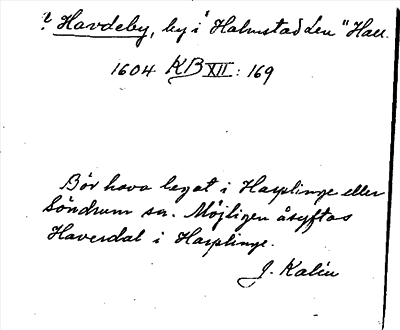 ? Havdeby, by i "Halmstad Len" Hall.
1604 KB XII : 169
Bör hava legat i Harplinge eller
Söndrum sn. Möjligen åsyftas
Haverdal i Harplinge.
J. Kalén